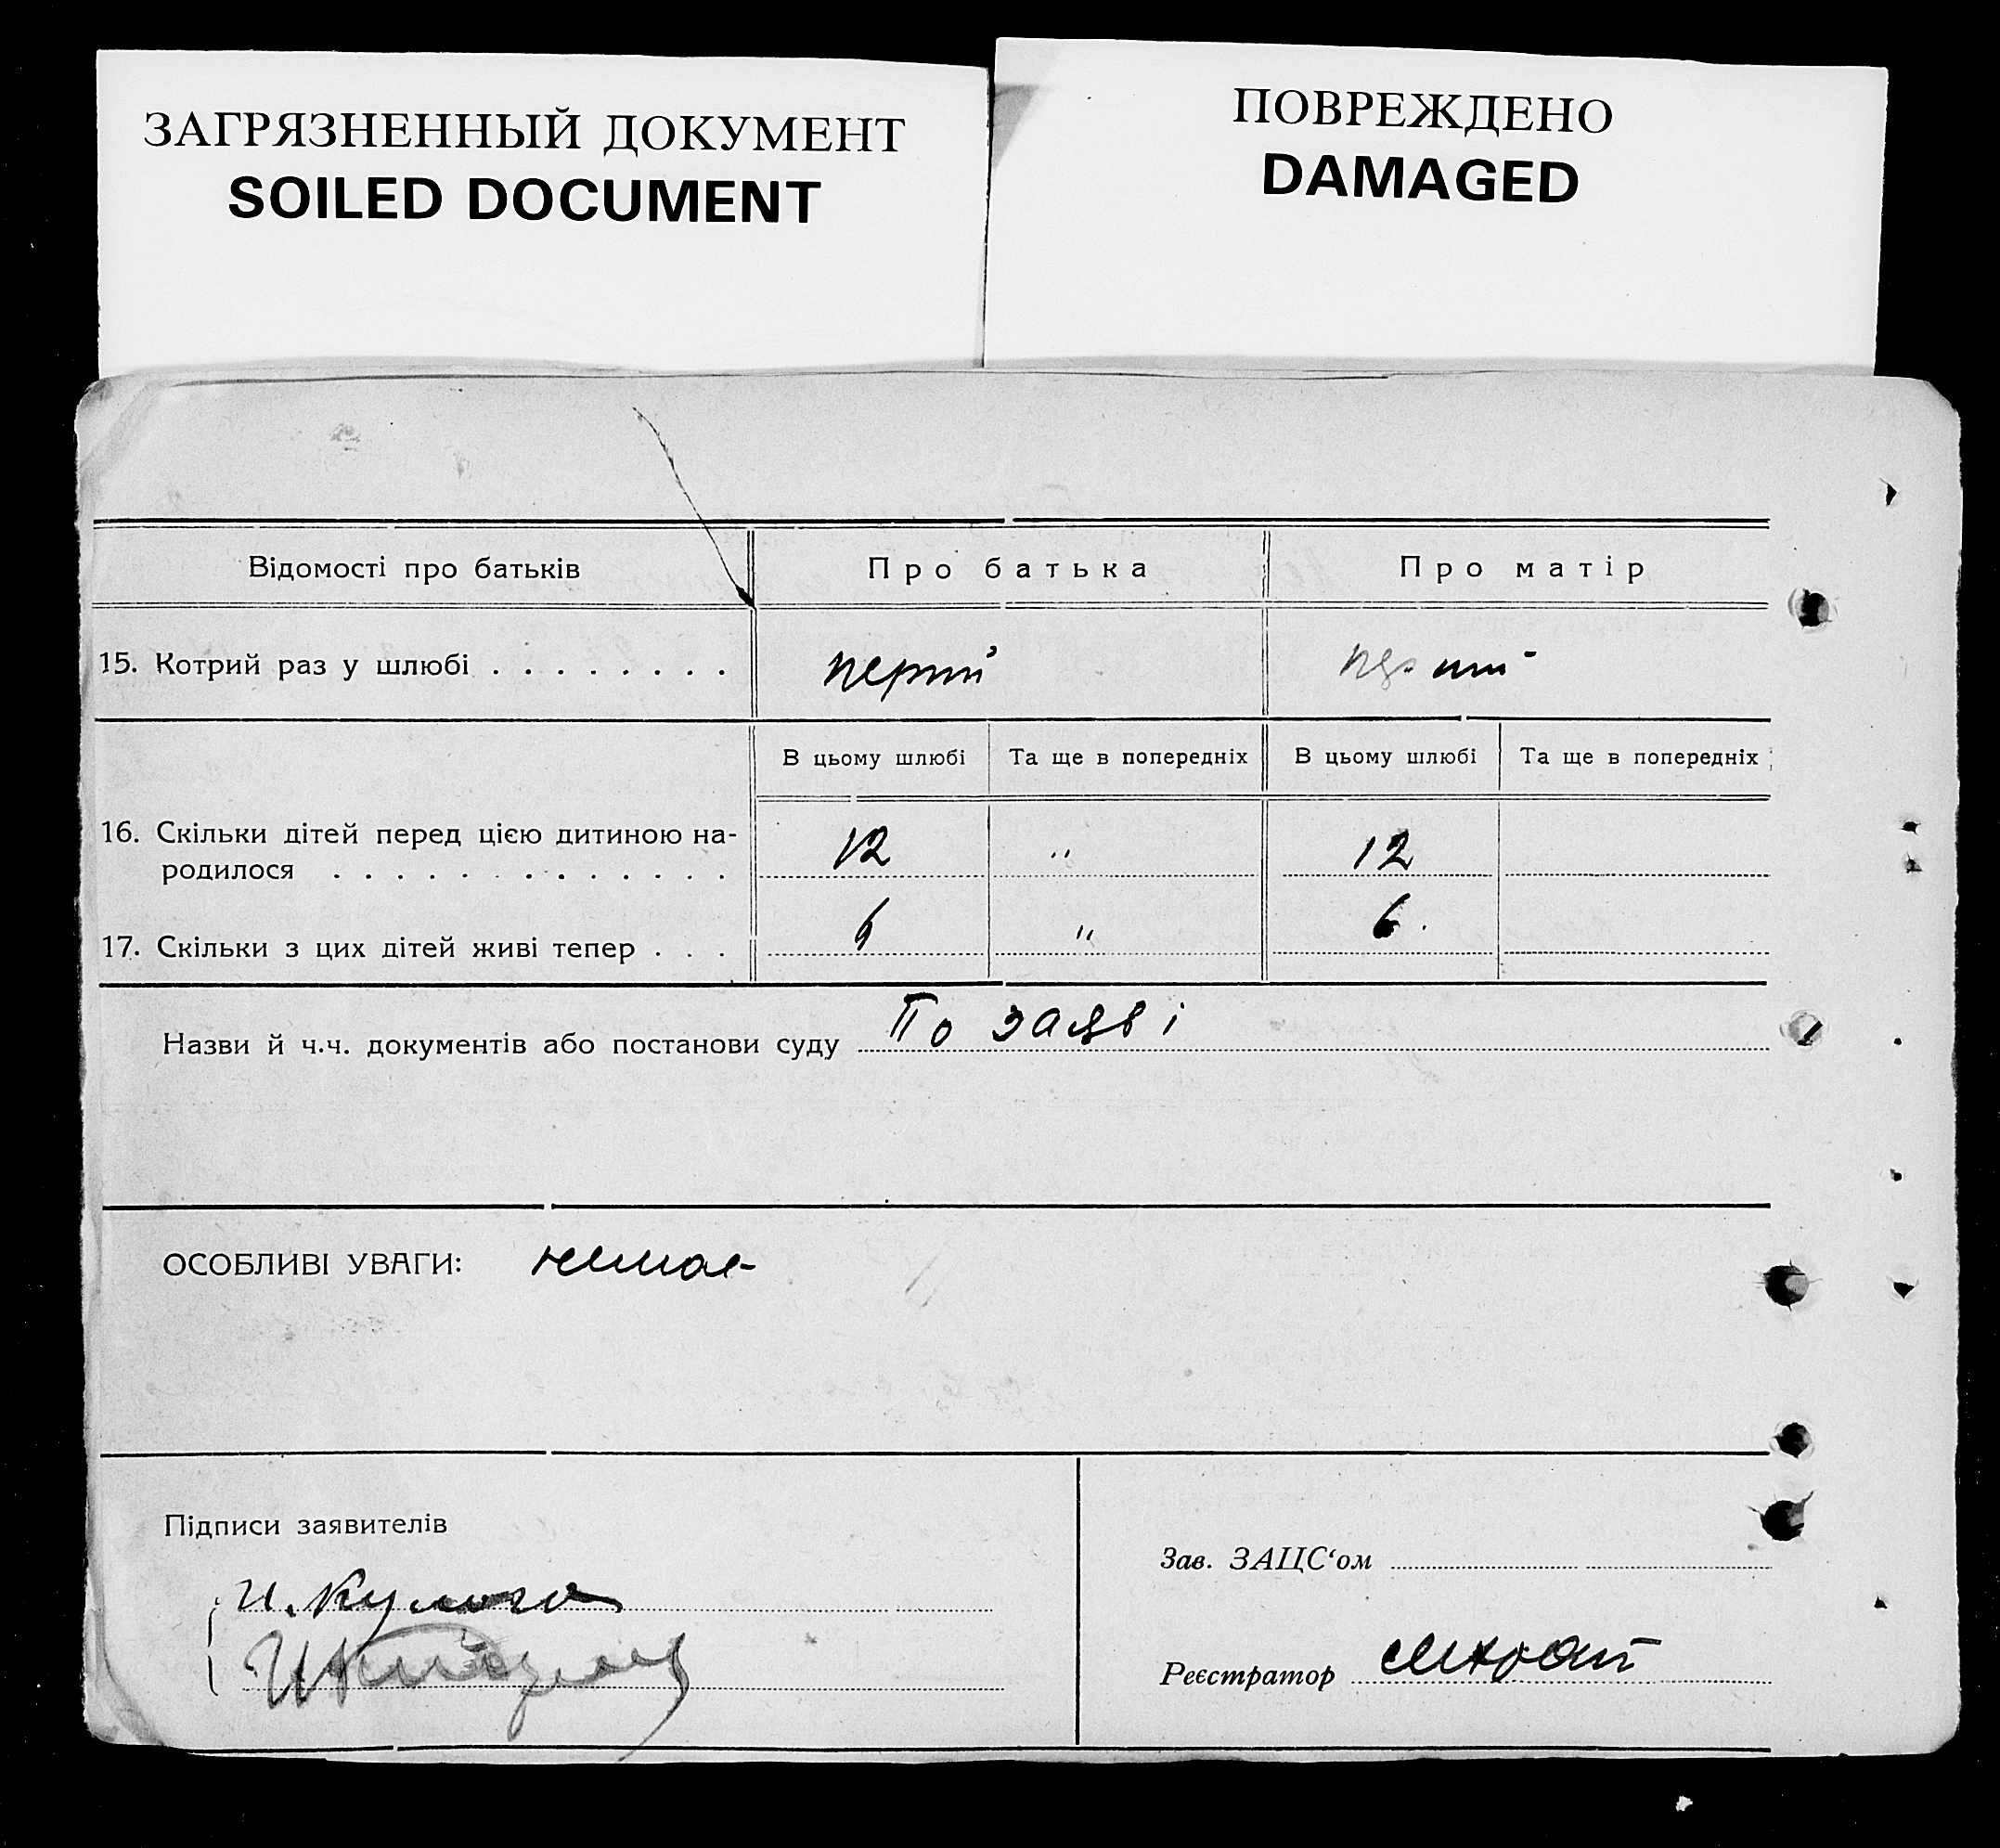 ЗАГРЯЗНЕННЫЙ ДОКУМЕНТ
SOILED DOCUMENT
ПОВРЕЖДЕНО
DAMAGED
Відомості про батьків Про батька Про матір
15. Котрий раз у шлюбі . . . . . . . . перший перший
В цьому шлюбі Та ще в попередніх В цьому шлюбі Та ще в попередніх
16. Скільки дітей перед цією дитиною на-
родилося . . . . . . . . . . . . . 12 " 12
17. Скільки з цих дітей живі тепер . . . 6 " 6.
Назви й ч.ч. документів або постанови суду По заяві
ОСОБЛИВІ УВАГИ: немає
Підписи заявителів
Зав. ЗАЦС‘ом
И.
Реєстратор